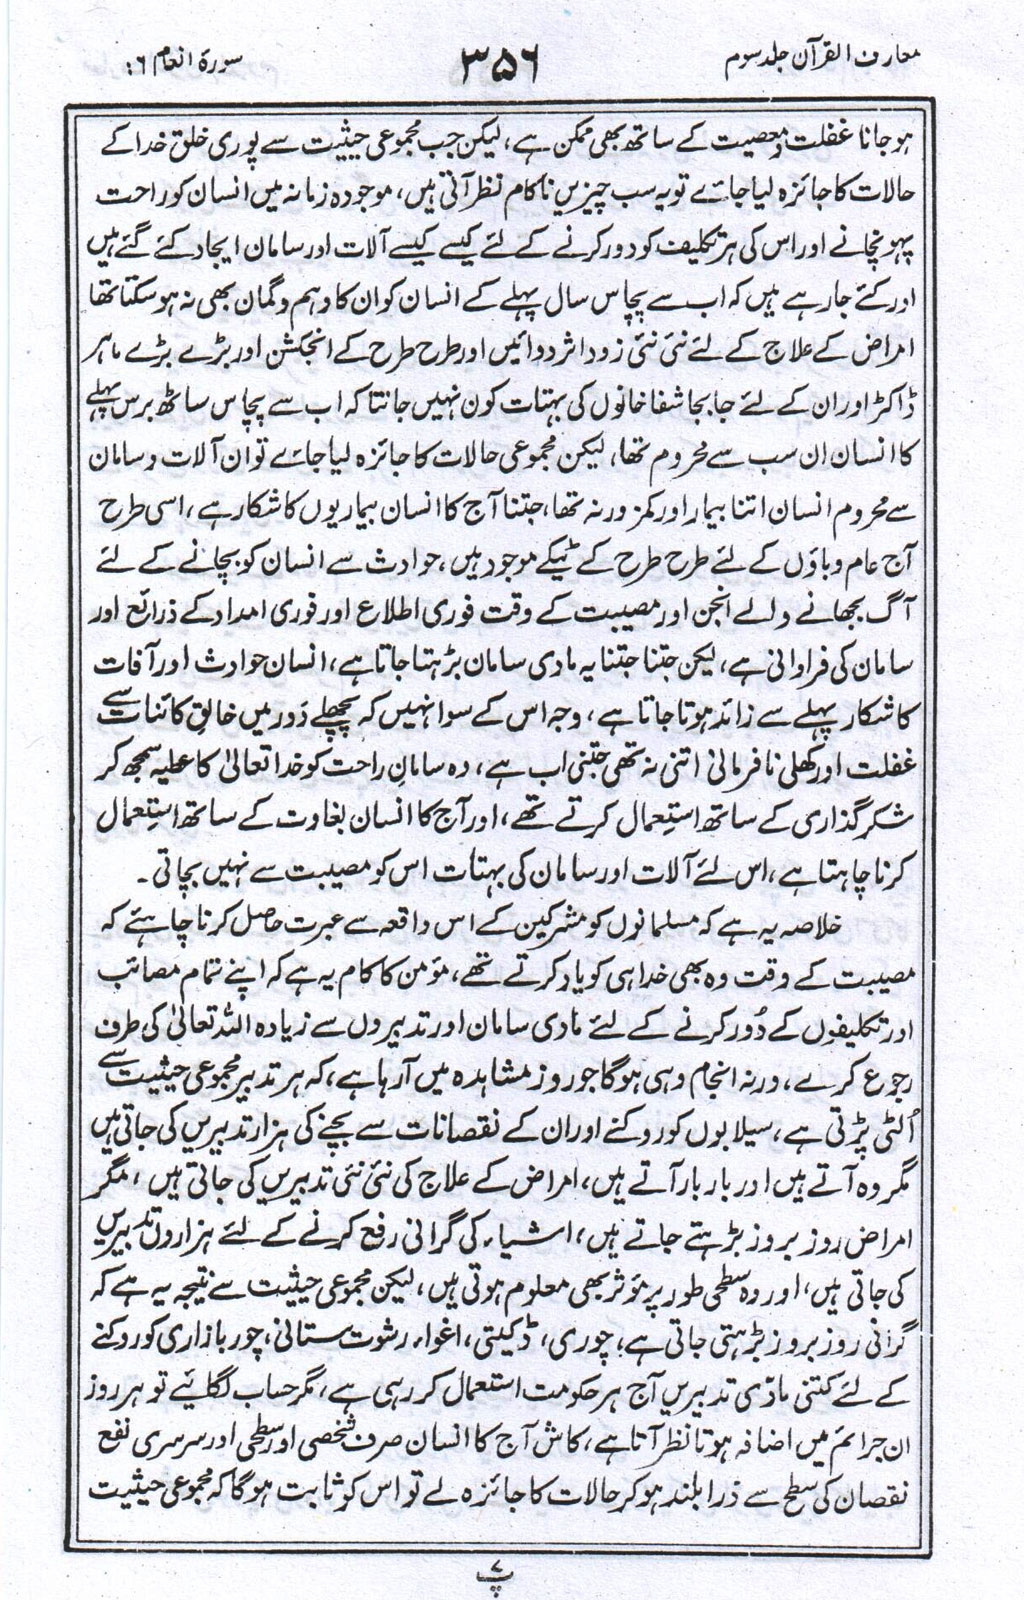 معارف القرآن جلد سوم
۳۵۶
سورۃ انعام ۶:
ہوجانا غفلت و معصیت کے ساتھ بھی ممکن ہے، لیکن جب مجموعی حیثیت سے پوری خلق خدا کے
حالات کا جائزہ لیا جائے تو یہ سب چیزیں ناکام نظر آتی ہیں، موجودہ زمانہ میں انسان کو راحت
پہونچانے اور اس کی ہر تکلیف کو دور کرنے کے لئے کیسے کیسے آلات اور سامان ایجاد کئے گئے ہیں
اور کئے جارہے ہیں کہ اب سے پچاس سال پہلے کے انسان کو ان کا وہم و گمان بھی نہ ہوسکتا تھا
امراض کے علاج کے لئے نئی نئی زود اثر دوائیں اور طرح طرح کے انجکشن اور بڑے بڑے ماہر
ڈاکٹر اور ان کے لئے جابجا شفاخانوں کی بہتات کون نہیں جانتا کہ اب سے پچاس ساٹھ برس پہلے
کا انسان ان سب سے محروم تھا، لیکن مجموعی حالات کا جائزہ لیا جائے تو ان آلات و سامان
سے محروم انسان اتنا بیمار اور کمزور نہ تھا، جتنا آج کا انسان بیماریوں کا شکار ہے، اسی طرح
آج عام وباؤں کے لئے طرح طرح کے ٹیکے موجود ہیں، حوادث سے انسان کو بچانے کے لئے
آگ بجھانے والے انجن اور مصیبت کے وقت فوری اطلاع اور فوری امداد کے ذرائع اور
سامان کی فراوانی ہے، لیکن جتنا جتنا یہ مادی سامان بڑہتا جاتا ہے، انسان حوادث اور آفات
کا شکار پہلے سے زائد ہوتا جاتا ہے، وجہ اس کے سوا نہیں کہ پچھلے دَور میں خالقِ کائنات سے
غفلت اور کھلی نافرمانی اتنی نہ تھی جتنی اب ہے، وہ سامانِ راحت کو خدا تعالیٰ کا عطیہ سمجھ کر
شکر گذاری کے ساتھ استِعمال کرتے تھے، اور آج کا انسان بغاوت کے ساتھ استِعمال
کرنا چاہتا ہے، اس لئے آلات اور سامان کی بہتات اس کو مصیبت سے نہیں بچاتی۔
خلاصہ یہ ہے کہ مسلمانوں کو مشرکین کے اس واقعہ سے عبرت حاصل کرنا چاہئے کہ
مصیبت کے وقت وہ بھی خدا ہی کو یاد کرتے تھے، مؤمن کا کام یہ ہے کہ اپنے تمام مصائب
اور تکلیفوں کے دُور کرنے کے لئے مادی سامان اور تدبیروں سے زیادہ اللہ تعالیٰ کی طرف
رجوع کرے، ورنہ انجام وہی ہوگا جو روز مشاہدہ میں آرہا ہے، کہ ہر تدبیر مجموعی حیثیت سے
اُلٹی پڑتی ہے، سیلابوں کو روکنے اور ان کے نقصانات سے بچنے کی ہزار تدبیریں کی جاتی ہیں
مگر وہ آتے ہیں اور بار بار آتے ہیں، امراض کے علاج کی نئی نئی تدبیریں کی جاتی ہیں، مگر
امراض روز بروز بڑہتے جاتے ہیں، اشیاء کی گرانی رفع کرنے کے لئے ہزاروں تدبیریں
کی جاتی ہیں، اور وہ سطحی طور پر مؤثر بھی معلوم ہوتی ہیں، لیکن مجموعی حیثیت سے نتیجہ یہ ہے کہ
گرانی روز بروز بڑہتی جاتی ہے، چوری، ڈکیتی، اغواء، رشوت ستانی، چور بازاری کو روکنے
کے لئے کتنی مادّی تدبیریں آج ہر حکومت استعمال کر رہی ہے، مگر حساب لگائیے تو ہر روز
ان جرائم میں اضافہ ہوتا نظر آتا ہے، کاش آج کا انسان صرف شخصی اور سطحی اور سرسری نفع
نقصان کی سطح سے ذرا بلند ہوکر حالات کا جائزہ لے تو اس کو ثابت ہوگا کہ مجموعی حیثیت
پ۷